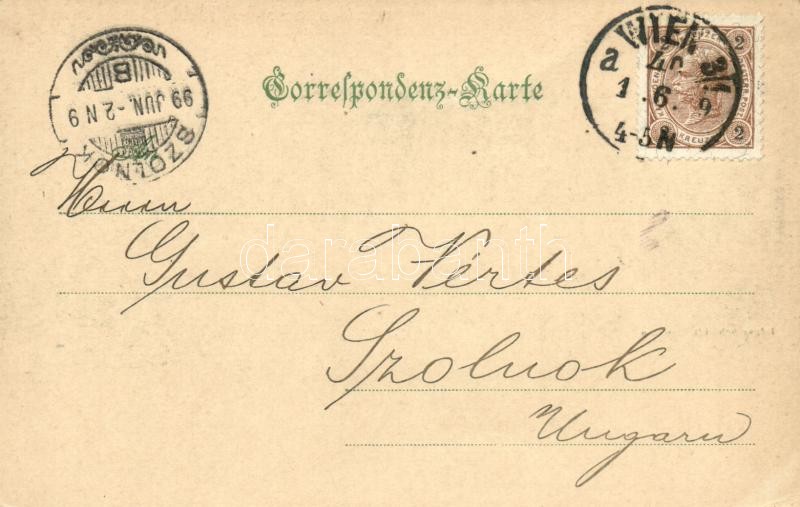 Correspondenz-Karte
WIEN 3/1
40
a
1.6.9
4-5N
2
2
KREUZER
SZOLNOK
99 JUN.-2 N9
B
Herrn
Gustav Vértes
Szolnok
Ungarn
darabanth